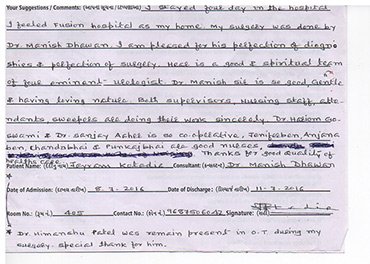 Your Suggestions / Comments: (સૂચનો) I stayed four day in the hospital
I feeled Fusion hospital as my home. My surgery was done by
Dr. Manish Dhawan. I am pleased for his perfection of diagno
shies & perfection of surgery. Hear is a good & spiritual team
of four eminent urologist. Dr. Manish sir is so good, Gentle
& having loving nature. Both supervisors, Nursing staff, atte-
ndants, sweepers all doing their work sincerely. Dr. Hariom Go-
swami & Dr. Sanjay are so co-oplative, Jeniferben, Anjana
ben, Chandabhai & Punkajbhai all good nurses,
Thanks for good quality of
healths care.
Patient Name: Jayram Katadie Consultant: Dr. Manish Dhawan
Date of Admission: 8.3.2016 Date of Discharge: 11-3-2016
Room No.: 405 Contact No.: 9687506042 Signature:
* Dr. Himanshu Patel was remain present in O.T during my
surgery. special thank for him.